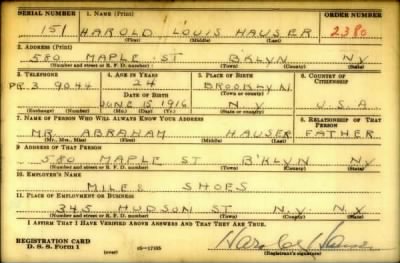 SERIAL NUMBER 1. NAME (Print) ORDER NUMBER
151 HAROLD LOUIS HAUSER 2380
(First) (Middle) (Last)
2. ADDRESS (Print)
580 MAPLE ST B'KLYN NY
(Number and street or R. F. D. number) (Town) (County) (State)
3. TELEPHONE 4. AGE IN YEARS 5. PLACE OF BIRTH 6. COUNTRY OF CITIZENSHIP
24 BROOKLYN
PR. 3 9044 DATE OF BIRTH (Town or county)
JUNE 15 1916 NY U.S.A.
(Exchange) (Number) (Mo.) (Day) (Yr.) (State or country)
7. NAME OF PERSON WHO WILL ALWAYS KNOW YOUR ADDRESS 8. RELATIONSHIP OF THAT PERSON
MR. ABRAHAM HAUSER FATHER
(Mr., Mrs., Miss) (First) (Middle) (Last)
9. ADDRESS OF THAT PERSON
580 MAPLE ST B'KLYN NY
(Number and street or R. F. D. number) (Town) (County) (State)
10. EMPLOYER'S NAME
MILES SHOES
11. PLACE OF EMPLOYMENT OR BUSINESS
345 HUDSON ST N.Y. NY
(Number and street or R. F. D. number) (Town) (County) (State)
I AFFIRM THAT I HAVE VERIFIED ABOVE ANSWERS AND THAT THEY ARE TRUE.
REGISTRATION CARD
D. S. S. Form 1 (over) 16—17105 (Registrant's signature)